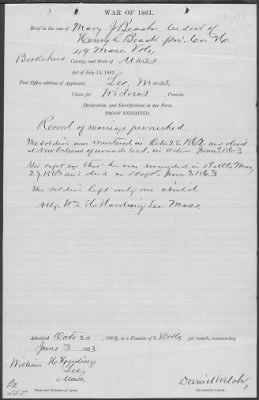 WAR OF 1861.
Brief in the case of Mary J Beach Widow of
Henry L Beach Pri. Co. H
49 Mass Vols
Berkshire County, and State of Mass
Act of July 14, 1862.
Post Office address of Applicant, Lee, Mass.
Claim for Widows Pension.
Declaration and Identification in due Form.
PROOF EXHIBITED.
Record of marriage furnished.
The soldier was mustered in Oct 28 1862 and died
at New Orleans of wounds recd. in action June 3 1863
His capt says that he was wounded in Battle May
27, 1863 and died in Hosp. June 3 1863
The soldier left only one child
Atty Wm H Harding Lee Mass.
Admitted Octr 20 1864, to a Pension of 8 Dolls per month, commencing
June 3 1863
William H Harding,
Lee,
Mass.
Daniel Welch,
Name and Residence of Agent.